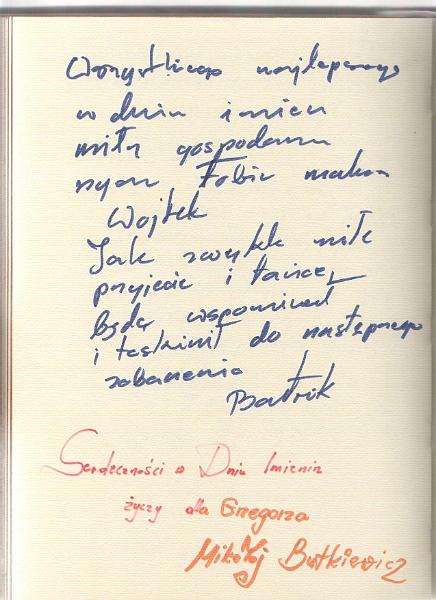 Wszystkiego najlepszego
w dniu imien
miły gospodarzu
Wojtek
Jak zwykle miłe
przyjęcie i tańce,
będę wspominał
i tęsknił do następnego
zobaczenia
Bartek
Serdeczności w Dniu Imienin
życzy dla Grzegorza
Mikołaj Butkiewicz